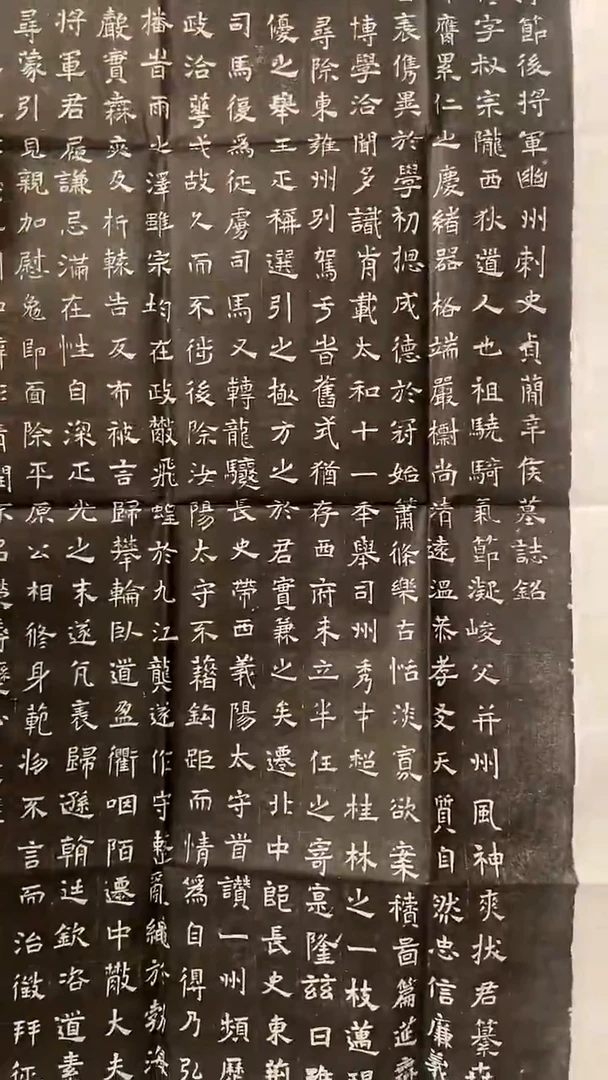 節後將軍幽州刺史貞蕳辛侯墓誌銘
字叔宗隴西狄道人也祖驍騎氣節凝峻父并州風神爽拔君纂
膺累仁之慶緒器格端嚴檦尚清遠溫恭孝友天質自然忠信廉義
衰儁異於學初摠成德於冠始蕭條樂古恬淡寡欲案積啚篇
博學洽聞多識前載太和十一年舉司州秀才超桂林之一枝邁
尋除東雍州別駕于旹舊式猶存西府未立半任之寄寔隆玆日
優之舉王正稱選引之極方之於君實兼之矣遷北中郎長史東荊
司馬復為征虜司馬又轉龍驤長史帶西義陽太守首讚一州頻歷
政洽䔢戎故久而不徙後除汝陽太守不藉鈎距而情爲自得乃弘
播旹雨之澤雖宗均在政散飛蝗於九江龔遂作守整亂繩於勃海
嚴實霖爽及析轅告反布被言歸攀輪臥道盈衢咽陌遷中散大夫
將軍君履謙忌滿在性自深正光之末遂瓦裏歸遜翰廷欽洛道素
尋蒙引見親加慰勉即面除平原公相脩身範物不言而治徵拜征